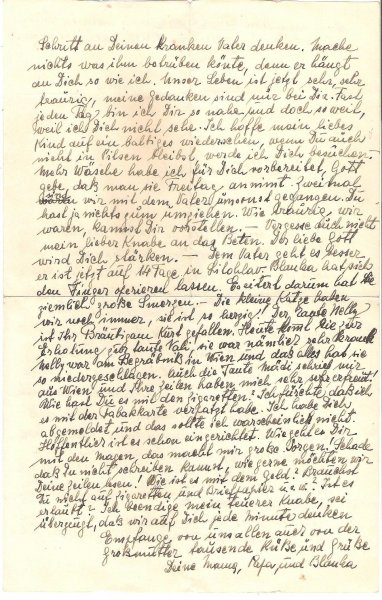 Schritt an Deinen kranken Vater denken. Mache
nichts was ihm betrüben könte, denn er hängt
an Dich so wie ich. Unser Leben ist jetzt sehr, sehr
traurig, meine Gedanken sind nur bei Dir. Fast
jeden Tag bin ich Dir so nahe und doch so weit,
weil ich Dich nicht sehe. Ich hoffe mein liebes
Kind auf ein baltiges wiedersehen, wenn Du auch
nicht in Pilsen bleibst, werde ich Dich besuchen.
Mehr Wäsche habe ich für Dich vorbereitet, Gott
gebe, daß man sie Freitag annimt. Zweimal
wir mit dem Vater umsonst gegangen. Du
hast ja nichts zum umziehen. Wie traurig, wir
waren, kannst Dir vorstellen. — Vergesse auch nicht
mein lieber Knabe an das Beten. Der liebe Gott
wird Dich stärken. — Dem Vater geht es besser
er ist jetzt auf 14 Tage in Blauka hat sich
den Finger operieren lassen. Es eitert darum hat sie
ziemlich große Smerzen. — Die kleine Katze haben
wir noch immer, sie ist so herzig! Der Tante Nelly
ist Ihr Bräutigam, Kurt gefallen. Heute kommt sie zur
Erholung zur Tante Vali, sie war nämlich sehr krank
Nelly war am Begräbnis in Wien und das alles hat sie
so niedergeschlagen. Auch die Tante Mädi schrieb mir
aus Wien und Ihre Zeilen haben mich sehr, sehr erfreut.
Wie hast Du es mit den Zigaretten? Ich fürchte, daß ich
es mit der Tabakkarte verpatzt habe. Ich habe Dich
abgemeldet und das sollte ich warscheinlich nicht.
Hoffentlich ist es schon eingerichtet. Wie geht es Dir
mit den Magen, das macht mir große Sorgen. Schade
daß Du nicht schreiben kannst, wie gerne möchten wir
Deine Zeilen lesen! Wie ist es mit dem Geld? Brauchst
Du nicht auf Zigaretten und Briefpapier u.s.w.? Ist es
erlaubt? Ich beendige mein teuerer Knabe, sei
überzeugt, daß wir auf Dich jede Minute denken
Empfange von uns allen auch von der
Großmutter tausende Küße und Grüße
Deine Mama, Papa, und Blauka